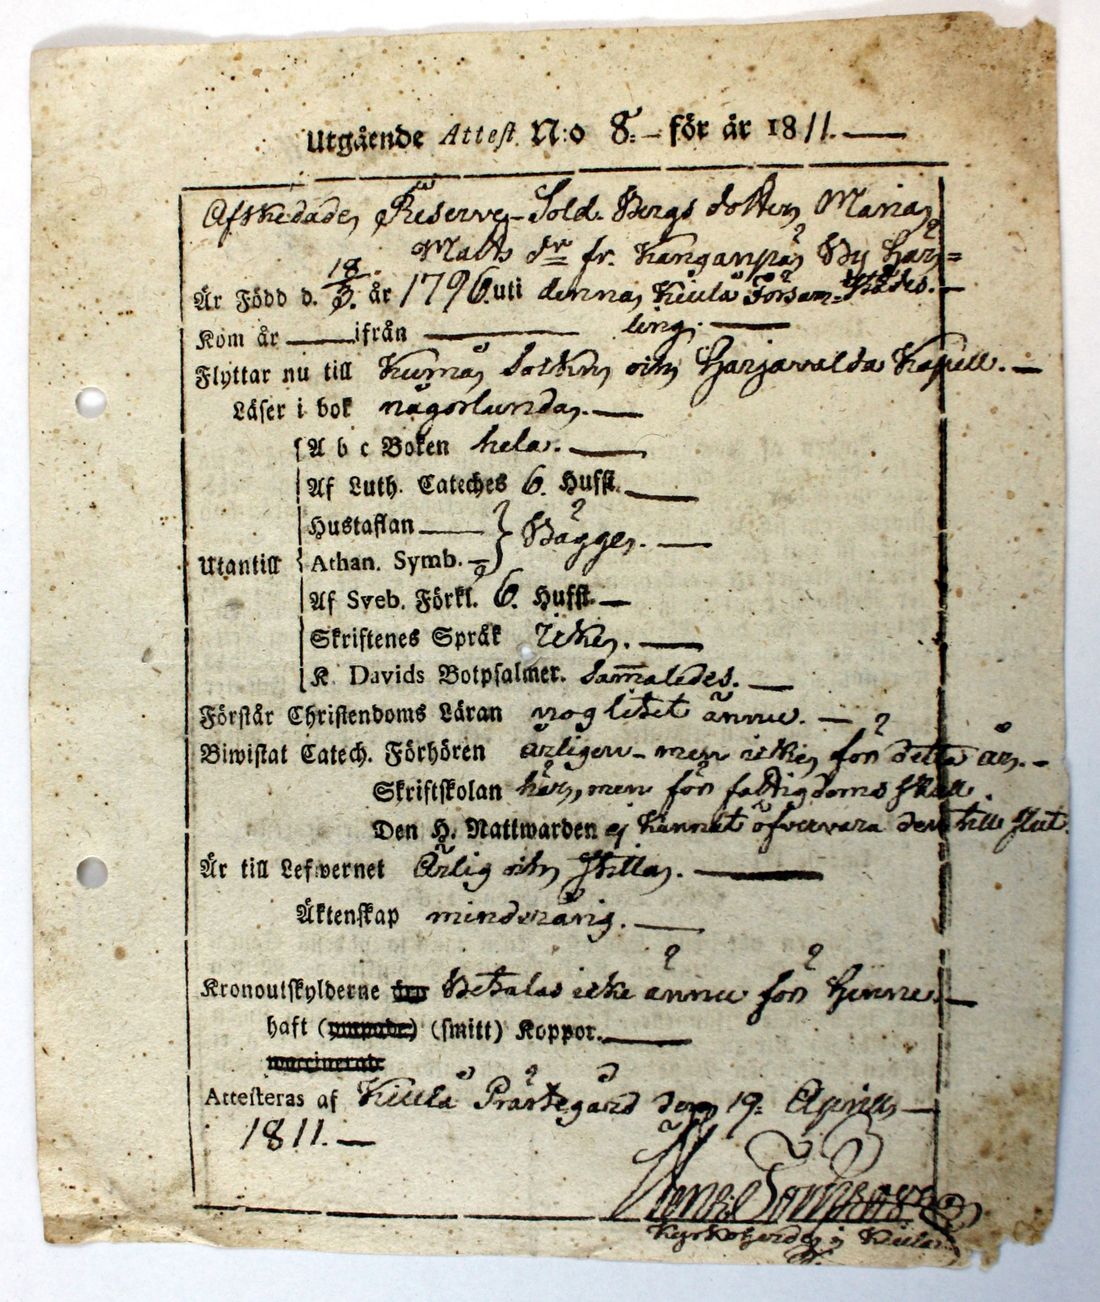 Utgående Attest N:o 8. för år 1811.
Afskedade Reserve-Sold. Bergs dotter Maria
Matts dr fr. Kanganpää By Här=
Är Född d. 18/3. år 1796. uti denna Kiula Försam= städes.
Kom år ifrån ling.
Flyttar nu till Kumå Sokn och Harjavalda Kapell.
Läser i bok någorlunda.
A b c Boken hela.
Af Luth. Cateches 6. Hufst.
Hustaflan
Bägge.
Utantill Athan. Symb.
Af Sveb. Förkl. 6. Hufst.
Skriftenes Språk icke.
K. Davids Botpsalmer. Sammaledes.
Förstår Christendoms Läran nog litet ännu.
Biwistat Catech. Förhören årligen - men icke för detta år.
Skriftskolan här, men för fattigdoms skull
Den H. Nattwarden ej kunnat öfvervara den till slut.
Är till Lefwernet Ärlig och stilla.
Äktenskap minderårig.
Kronoutskylderne Betalas icke ännu för Henne.
haft (ympade) (smitt) Koppor.
waccinerad
Attesteras af Kiula Prästegård den 19. April
1811.
Kyrkoherde i Kiula